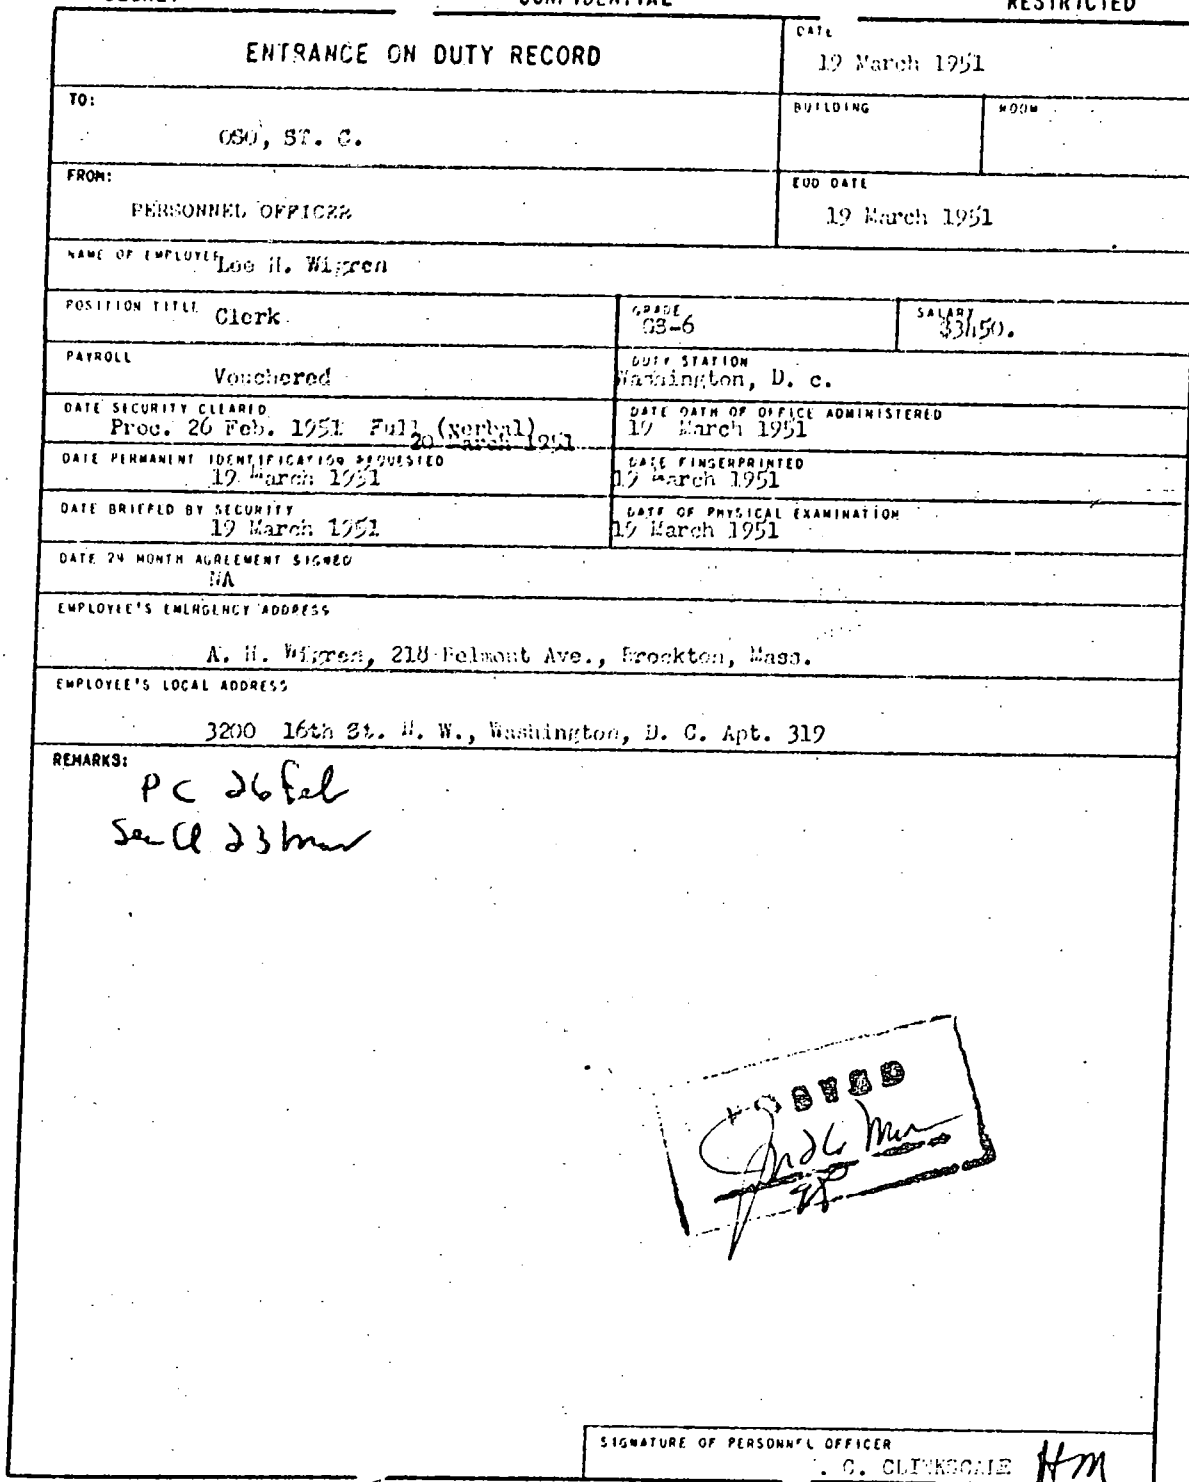 CONFIDENTIAL RESTRICTED
ENTRANCE ON DUTY RECORD
DATE
19 March 1951
TO:
OSO, ST. C.
BUILDING
ROOM
FROM:
PERSONNEL OFFICER
EOD DATE
19 March 1951
NAME OF EMPLOYEE Lee H. Wigren
POSITION TITLE Clerk
GRADE
GS-6
SALARY
$3450.
PAYROLL
Vouchered
DUTY STATION
Washington, D. c.
DATE SECURITY CLEARED
Proc. 26 Feb. 1951 Full (verbal)
20 March 1951
DATE OATH OF OFFICE ADMINISTERED
19 March 1951
DATE PERMANENT IDENTIFICATION REQUESTED
19 March 1951
DATE FINGERPRINTED
19 March 1951
DATE BRIEFED BY SECURITY
19 March 1951
DATE OF PHYSICAL EXAMINATION
19 March 1951
DATE 24 MONTH AGREEMENT SIGNED
NA
EMPLOYEE'S EMERGENCY ADDRESS
A. H. Wigren, 218 Belmont Ave., Brockton, Mass.
EMPLOYEE'S LOCAL ADDRESS
3200 16th St. N. W., Washington, D. C. Apt. 319
REMARKS:
PC 26 Feb
Sec Cl 23 Mar
POSTED
26 Mar
SIGNATURE OF PERSONNEL OFFICER
. C. CLINKSCALE HM